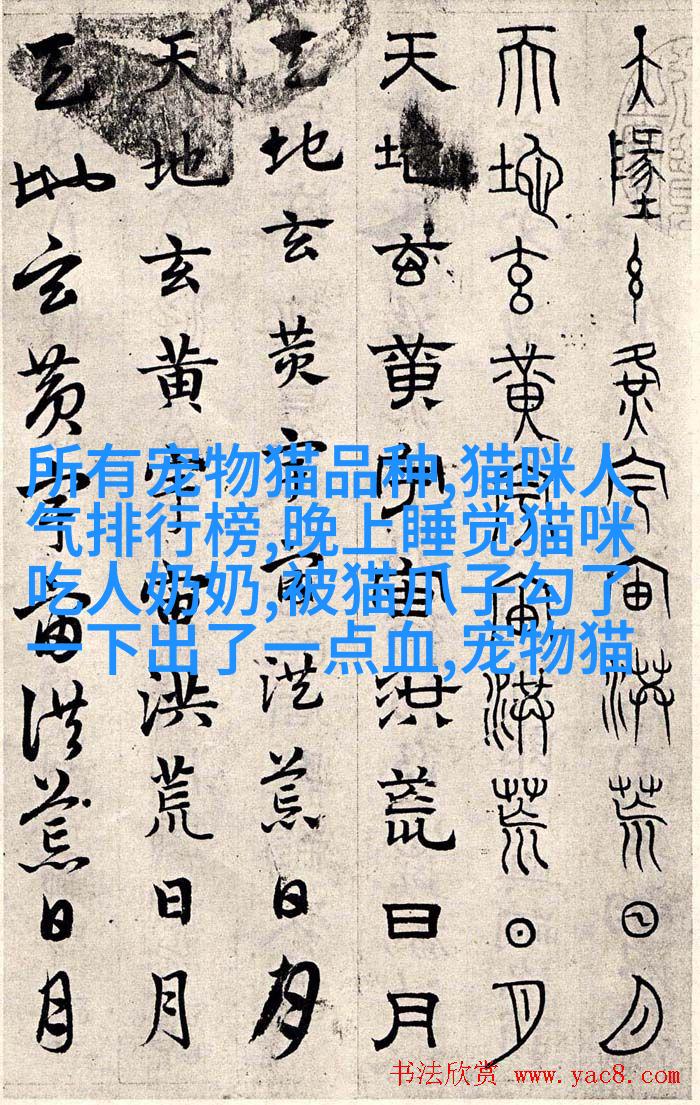 天墬玄黄宇宙洪荒日月
天地玄黄宇宙洪荒日月
天地玄黄宇宙洪荒日月
天地玄黄宇宙洪荒日月
天地玄黄宇宙洪荒日月
天地玄黄宇宙洪荒日月
所有宠物猫品种,猫咪人
气排行榜,晚上睡觉猫咪
吃人奶奶,被猫爪子勾了
一下出了一点血,宠物猫
书法欣赏 www.yac8.com